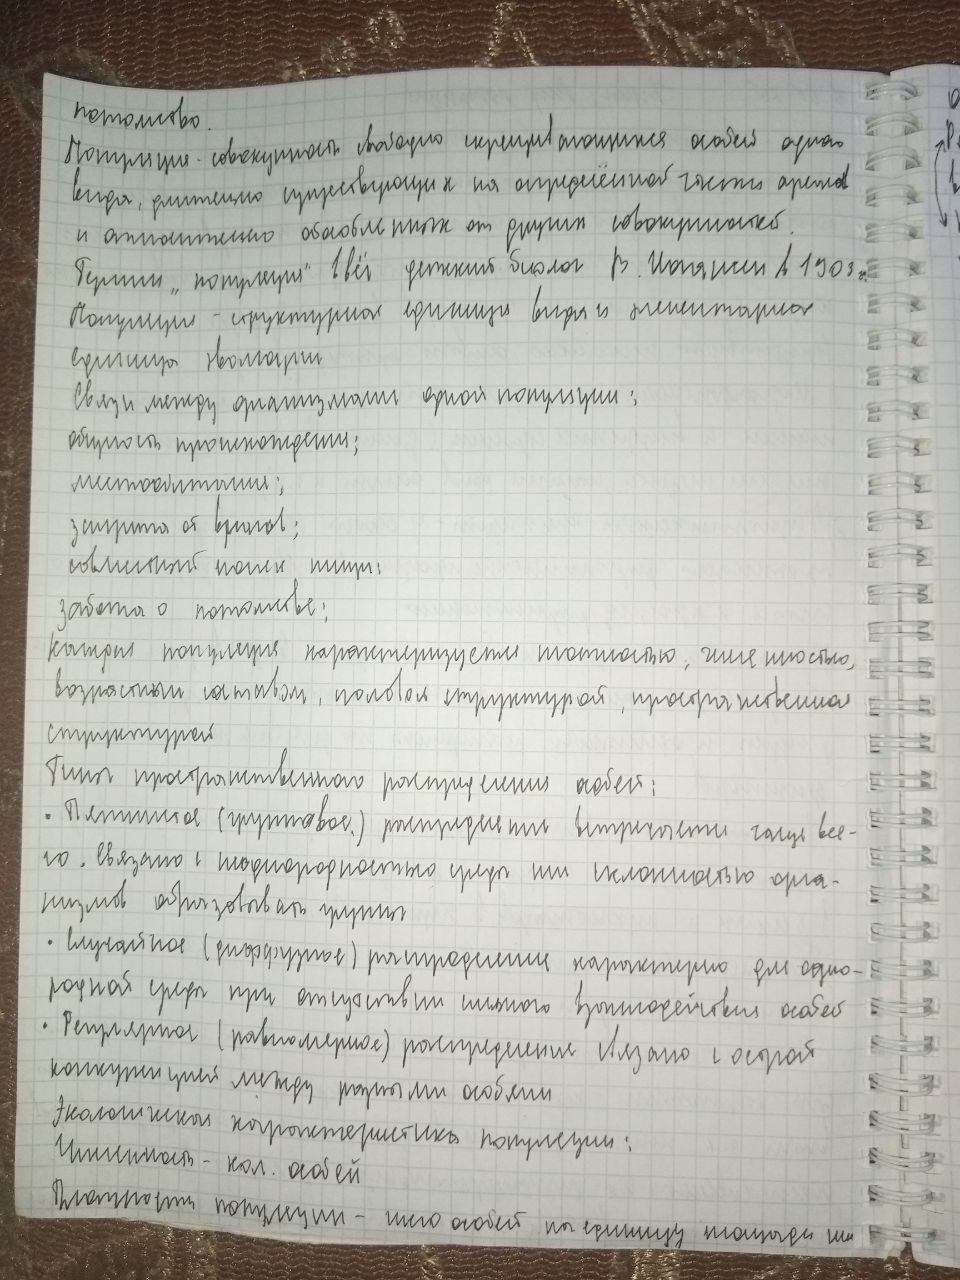 потомство.
Популяция - совокупность свободно скрещивающихся особей одного
вида, длительно существующих на определённой части ареала
и относительно обособленных от других совокупностей.
Термин „популяция" ввёл датский биолог В. Иогансен в 1903 г.
Популяция - структурная единица вида и элементарная
единица эволюции
Связи между организмами одной популяции:
общность происхождения;
местообитания;
защита от врагов;
совместный поиск пищи;
забота о потомстве;
Каждая популяция характеризуется плотностью, численностью,
возрастным составом, половой структурой, пространственной
структурой
Типы пространственного распределения особей:
• Пятнистое (групповое) распределение встречается чаще все-
го. Связано с неоднородностью среды или склонностью орга-
низмов образовывать группы
• Случайное (диффузное) распределение характерно для одно-
родной среды при отсутствии сильного взаимодействия особей
• Регулярное (равномерное) распределение связано с острой
конкуренцией между разными особями
Экологическая характеристика популяции:
Численность - кол. особей
Плотность популяции - число особей на единицу площади или